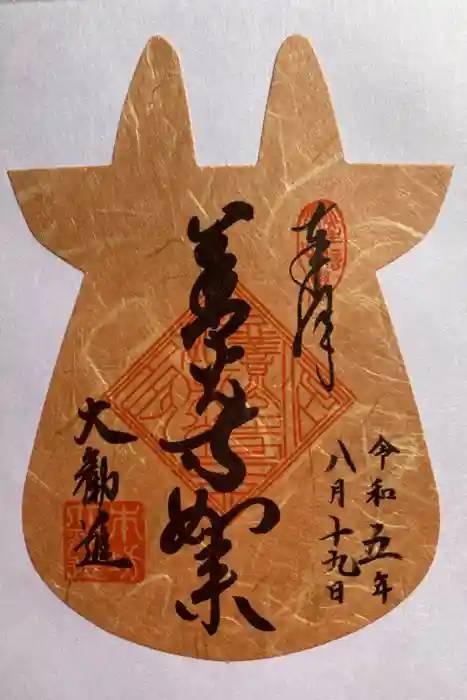 奉拝
令和五年
八月十九日
善光寺如来
大勧進